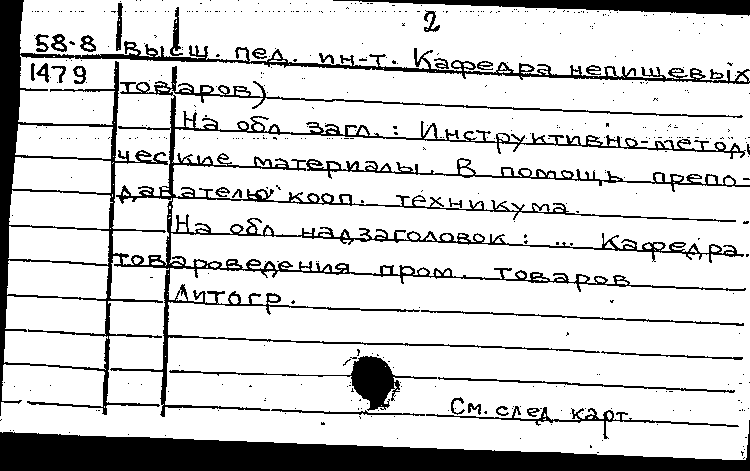 2
58-8 высш. пед. ин-т. Кафедра непищевых
1479 товаров)
На обл загл.: Инструктивно-методи
ческие материалы. В помощь препо-
давателю кооп. техникума.
На обл надзаголовок: ... Кафедра
товароведения пром. товаров
Литогр.
См. след. карт.